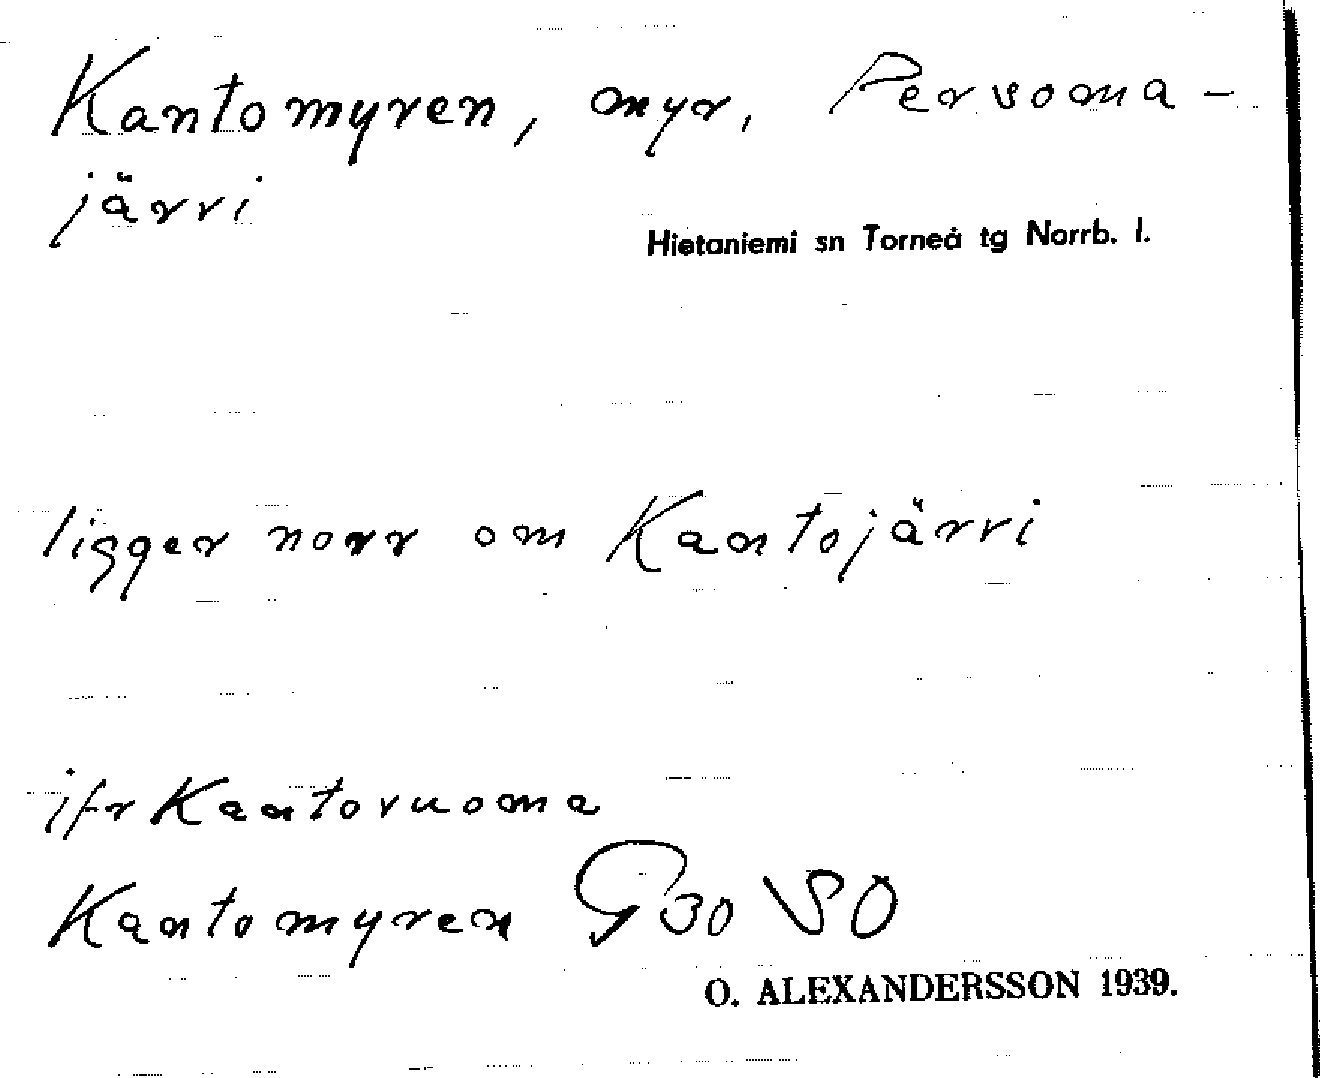 Kantomyren, myr, Persoma-
järvi
Hietaniemi sn Torneå tg Norrb. l.
ligger norr om Kantojärvi
jfr Kantovuoma
Kantomyren G 30 SO
O. ALEXANDERSSON 1939.